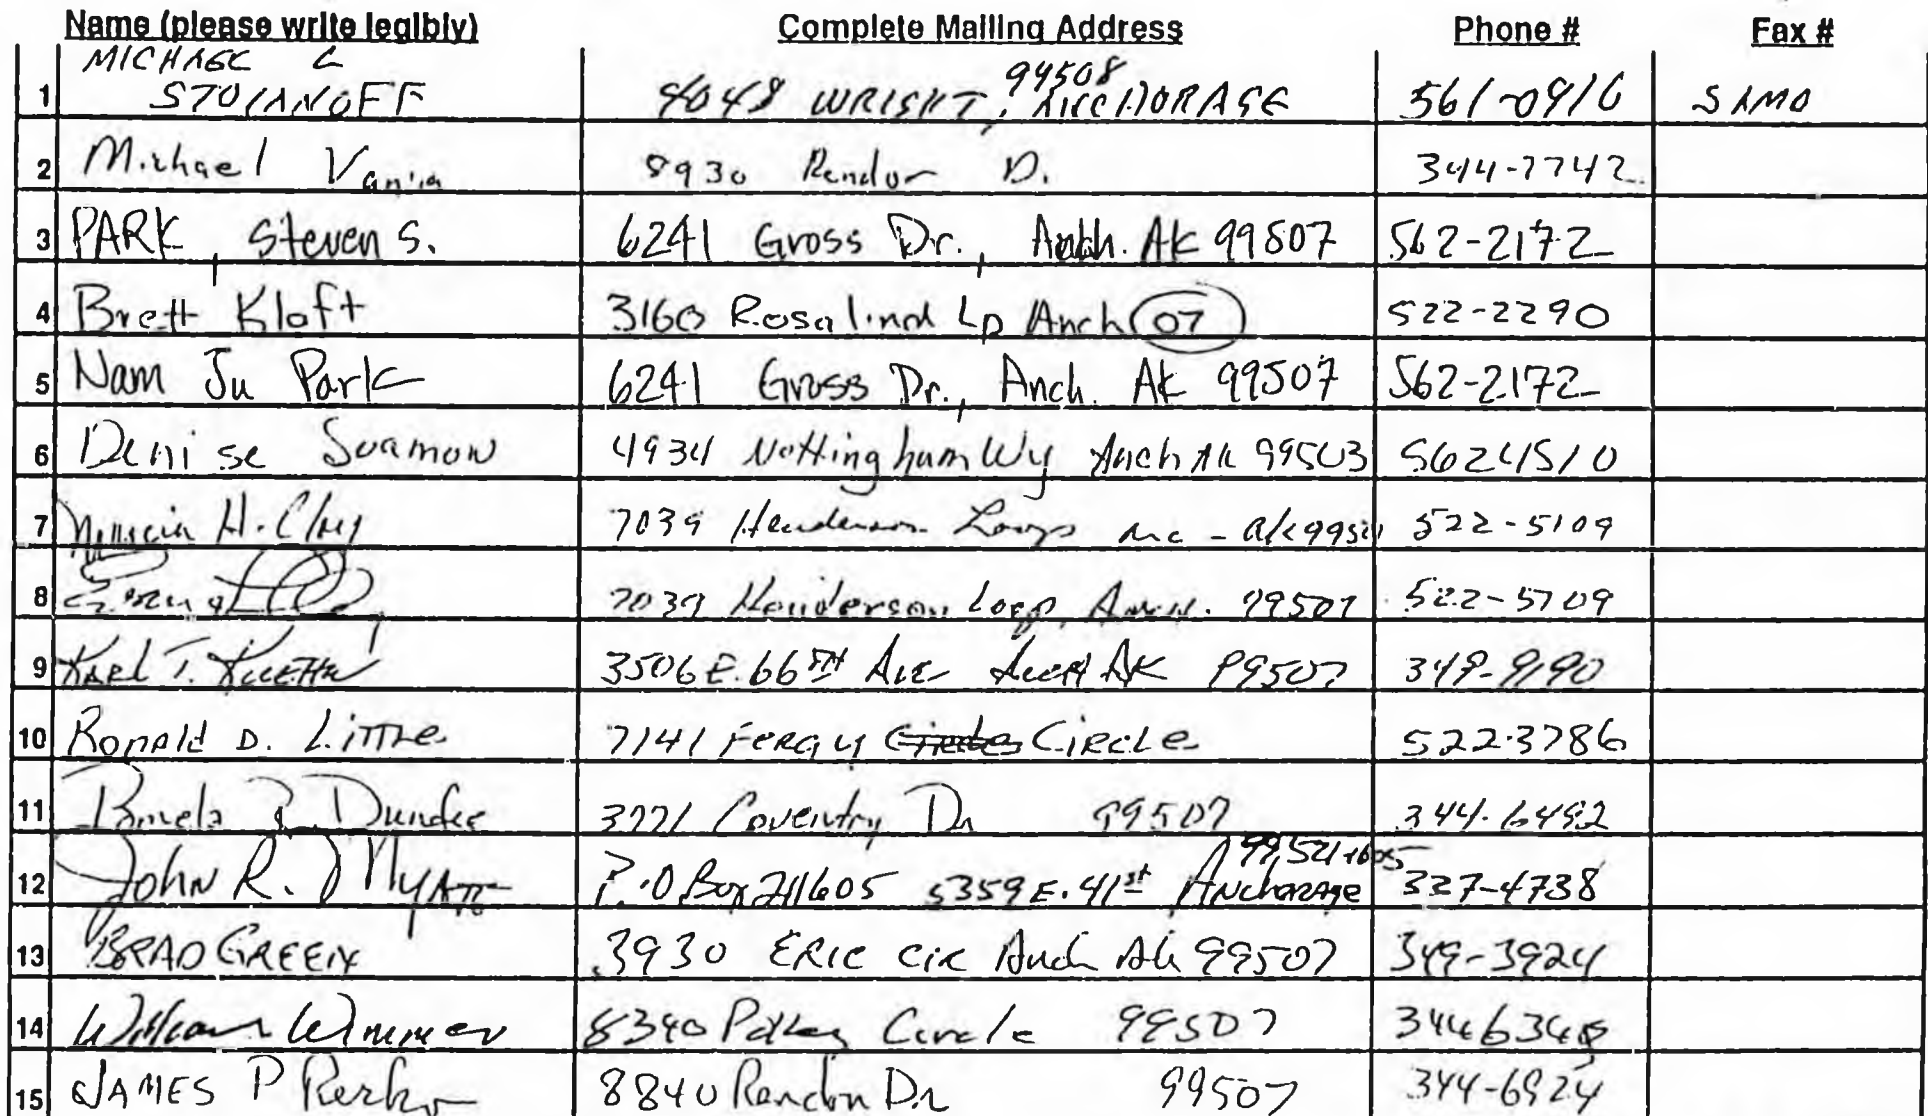 Name (please write legibly) Complete Mailing Address Phone # Fax #
MICHAEL L
99508
1 STOIANOFF 4048 WRIGHT, ANCHORAGE 561-0916 SAMO
2 Michael Vania 8930 Rendor D. 344-7742
3 PARK, Steven S. 6241 Gross Dr., Anch. AK 99507 562-2172
4 Brett Kloft 3160 Rosalind Lp Anch 07 522-2290
5 Nam Ju Park 6241 Gross Dr., Anch. AK 99507 562-2172
6 Denise 4934 Nottingham Wy Anch AK 99503 5624510
7 H. 7039 Henderson Loop - ak 522-5109
8 7039 Henderson Loop, 99507 522-5709
9 Karl T. 3506 E. 66TH Ave AK 99507 349-9190
10 Ronald D. Little 7141 Fergy Circle 522-3786
11 Pamela Dundee 3721 Coventry Dr 99507 344-6492
99521-1605
12 John R. Myatt P.O Box 211605 5359 E. 41st Anchorage 327-4738
13 BRAD GREEN 3930 ERIC CIR Anch Ak 99507 349-3924
14 William Wimmer 8340 Circle 99507 3446348
15 JAMES P 8840 Rendon Dr 99507 344-6924